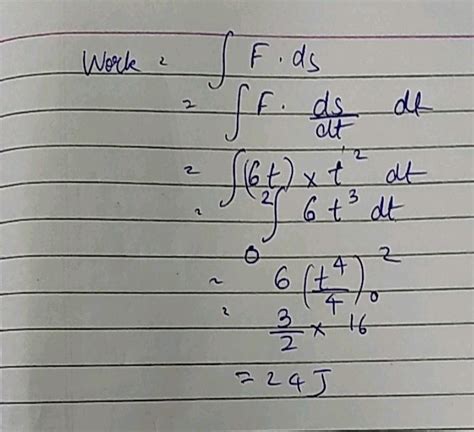 Work = ∫ F · ds
= ∫ F · ds/dt dt
= ∫ (6t) × t² dt
= ∫₀² 6t³ dt
= 6 (t⁴/4)₀²
= 3/2 × 16
= 24 J